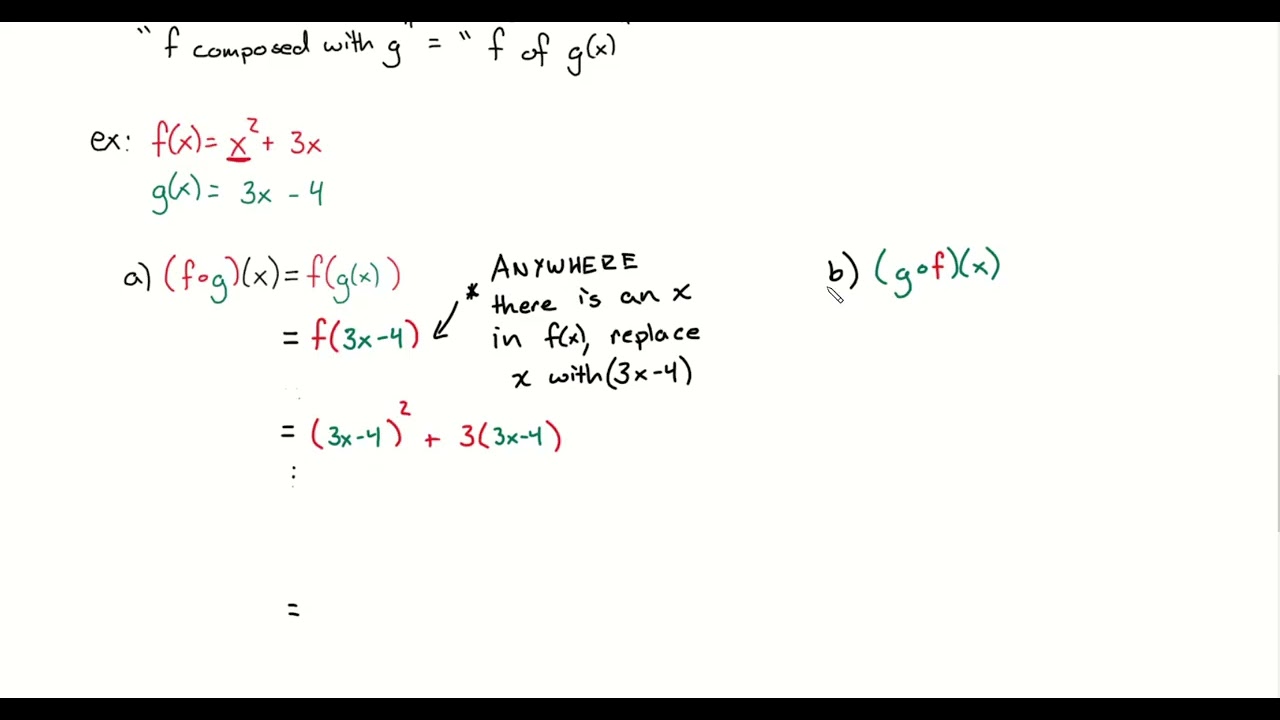 "f composed with g" = "f of g(x)"
ex: f(x) = x² + 3x
g(x) = 3x - 4
a) (f∘g)(x) = f(g(x))
= f(3x-4)
* ANYWHERE
there is an x
in f(x), replace
x with (3x-4)
= (3x-4)² + 3(3x-4)
:
=
b) (g∘f)(x)